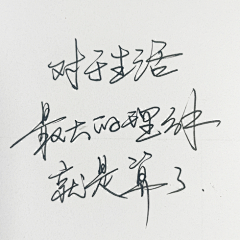 对于生活
最大的理解
就是算了.